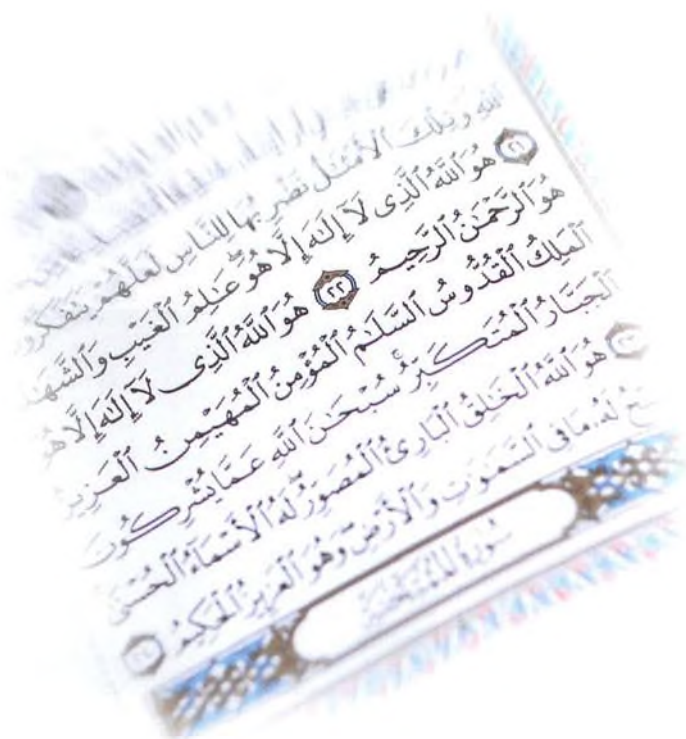 ٱللَّهِ وَتِلْكَ ٱلْأَمْثَٰلُ نَضْرِبُهَا لِلنَّاسِ لَعَلَّهُمْ يَتَفَكَّرُو
٢١ هُوَ ٱللَّهُ ٱلَّذِى لَآ إِلَٰهَ إِلَّا هُوَ ۖ عَٰلِمُ ٱلْغَيْبِ وَٱلشَّهَٰ
هُوَ ٱلرَّحْمَٰنُ ٱلرَّحِيمُ ٢٢ هُوَ ٱللَّهُ ٱلَّذِى لَآ إِلَٰهَ إِلَّا هُوَ
ٱلْمَلِكُ ٱلْقُدُّوسُ ٱلسَّلَٰمُ ٱلْمُؤْمِنُ ٱلْمُهَيْمِنُ ٱلْعَزِيزُ
ٱلْجَبَّارُ ٱلْمُتَكَبِّرُ ۚ سُبْحَٰنَ ٱللَّهِ عَمَّا يُشْرِكُونَ
٢٣ هُوَ ٱللَّهُ ٱلْخَٰلِقُ ٱلْبَارِئُ ٱلْمُصَوِّرُ ۖ لَهُ ٱلْأَسْمَآءُ ٱلْحُسْنَىٰ
حُ لَهُۥ مَا فِى ٱلسَّمَٰوَٰتِ وَٱلْأَرْضِ ۖ وَهُوَ ٱلْعَزِيزُ ٱلْحَكِيمُ ٢٤
سُورَةُ ٱلْمُمْتَحَنَةِ